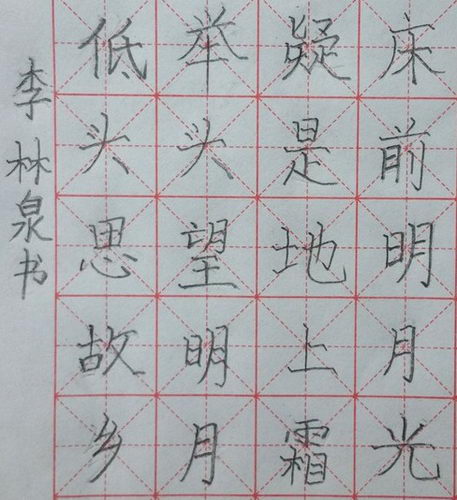 床前明月光
疑是地上霜
举头望明月
低头思故乡
李林泉书